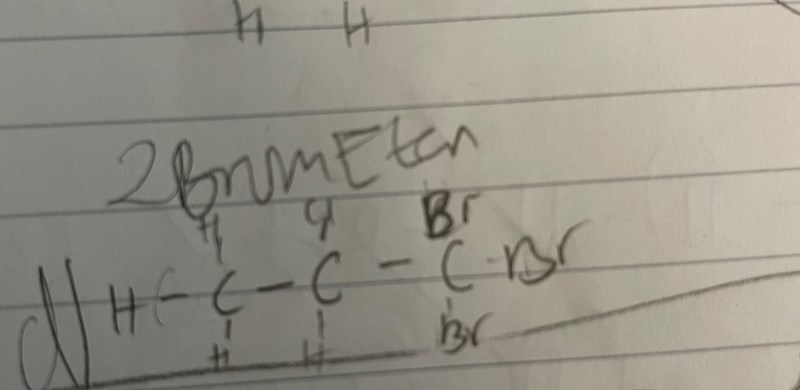 H H
2BromEten
H Cl Br
d) H - C - C - C - Br
H H Br